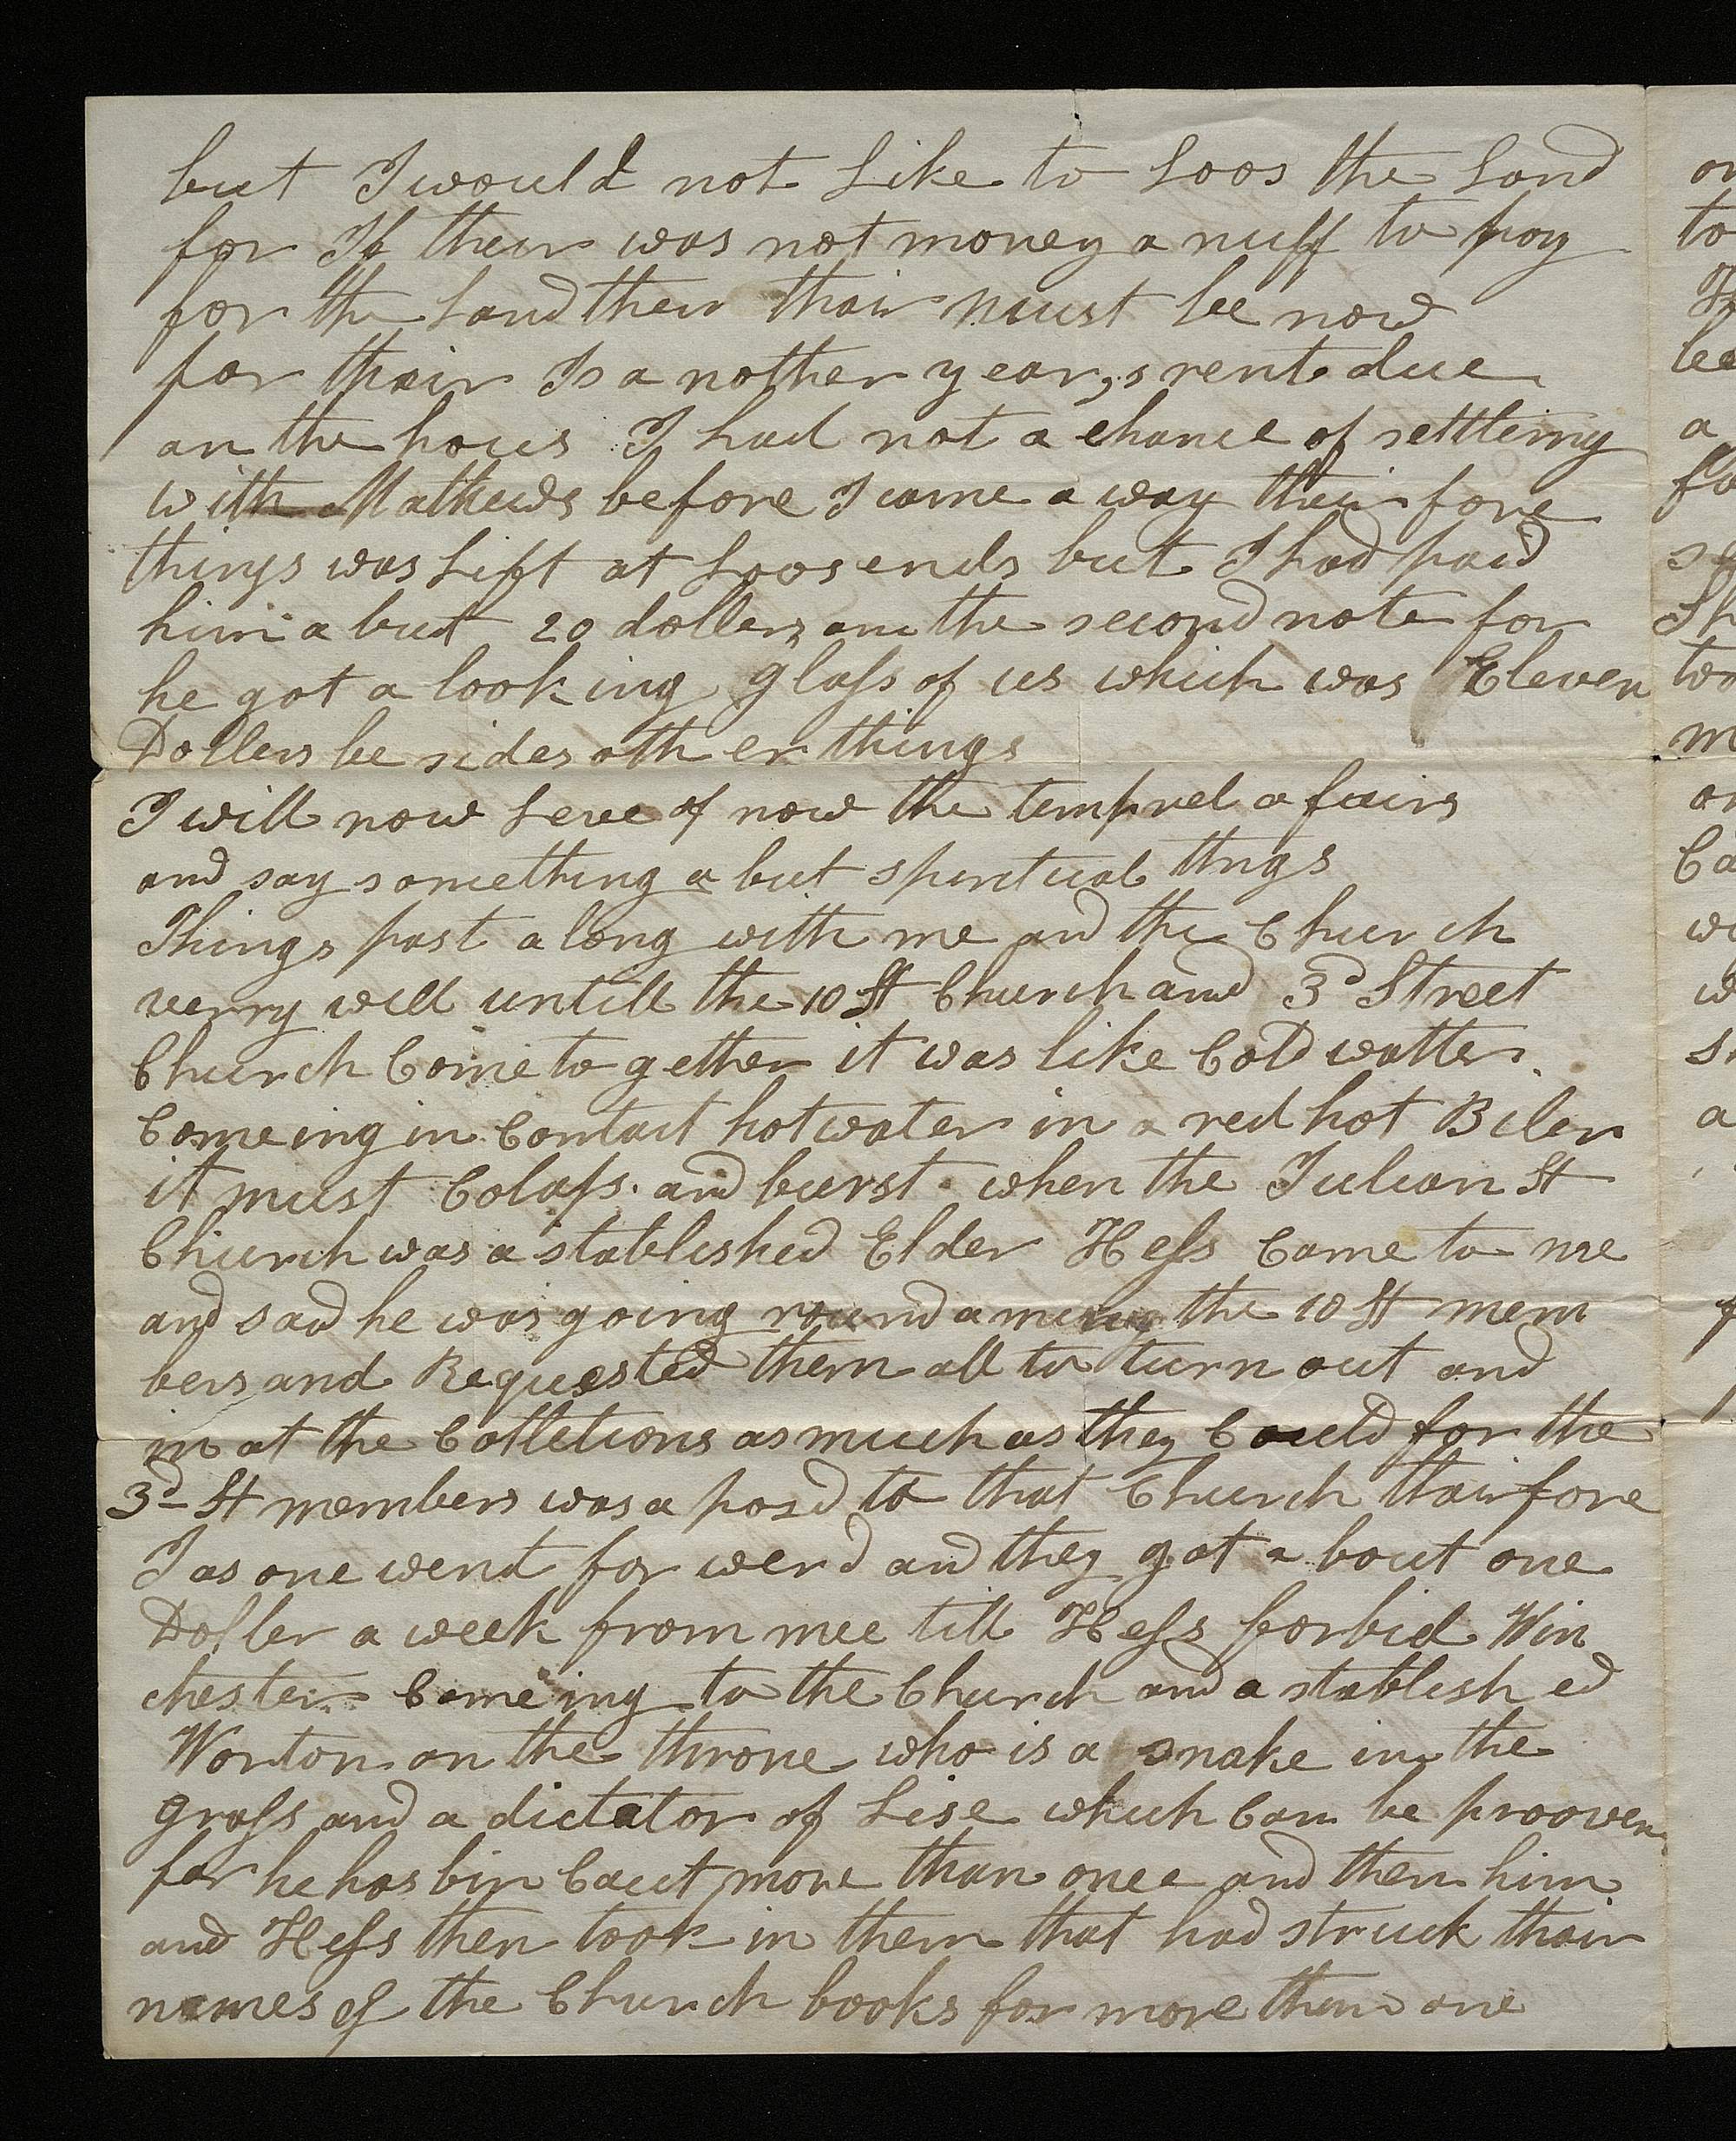 but I would not Like to Loos the Land
for If then was not money a nuff to pay
for the Land then thair must be now
for thair Is a nother year,s rent due
an the hous I had not a chance of settleing
with Mathews before I came a way thair fore
things was Lift at Loos ends but I had paid
him a but 20 dollers on the second note for
he got a looking glass of us which was Eleven
Dollers be sides oth er things
I will now Leve of now the temprel a fairs
and say something a but spiritual thngs
Things past a long with me and the Church
verry well untill the 10 St Church and 3d Street
Church Come to gether it was like Cold watter
Comeing in Contact hot water in a red hot Biler
it must Colaps. and burst. when the Julian St
Church was a stablished Elder Hess Came to me
and sad he was going round amung the 10 St mem
bers and Requested them all to turn out and
in at the Colletions as much as they Could for the
3d St members was a posd to that Church thair fore
I as one went for werd and they got a bout one
Doller a week from mee till Hess forbid Win
chester Comeing to the Church and a stablish ed
Worton on the throne who is a snake in the
grass and a dictator of Lise which Can be prooven
for he has bin Caut more than once and then him
and Hess then took in them that had struck thair
names of the Church books for more then one
or
to
bee
a